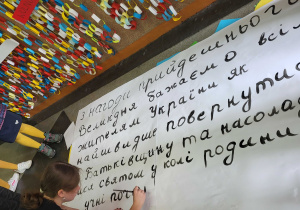 З нагоди прийдешнього
Великодня бажаємо всім
жителям України як
найшвидше повернутис
Батьківщину та насолод
святом у колі родини
учні